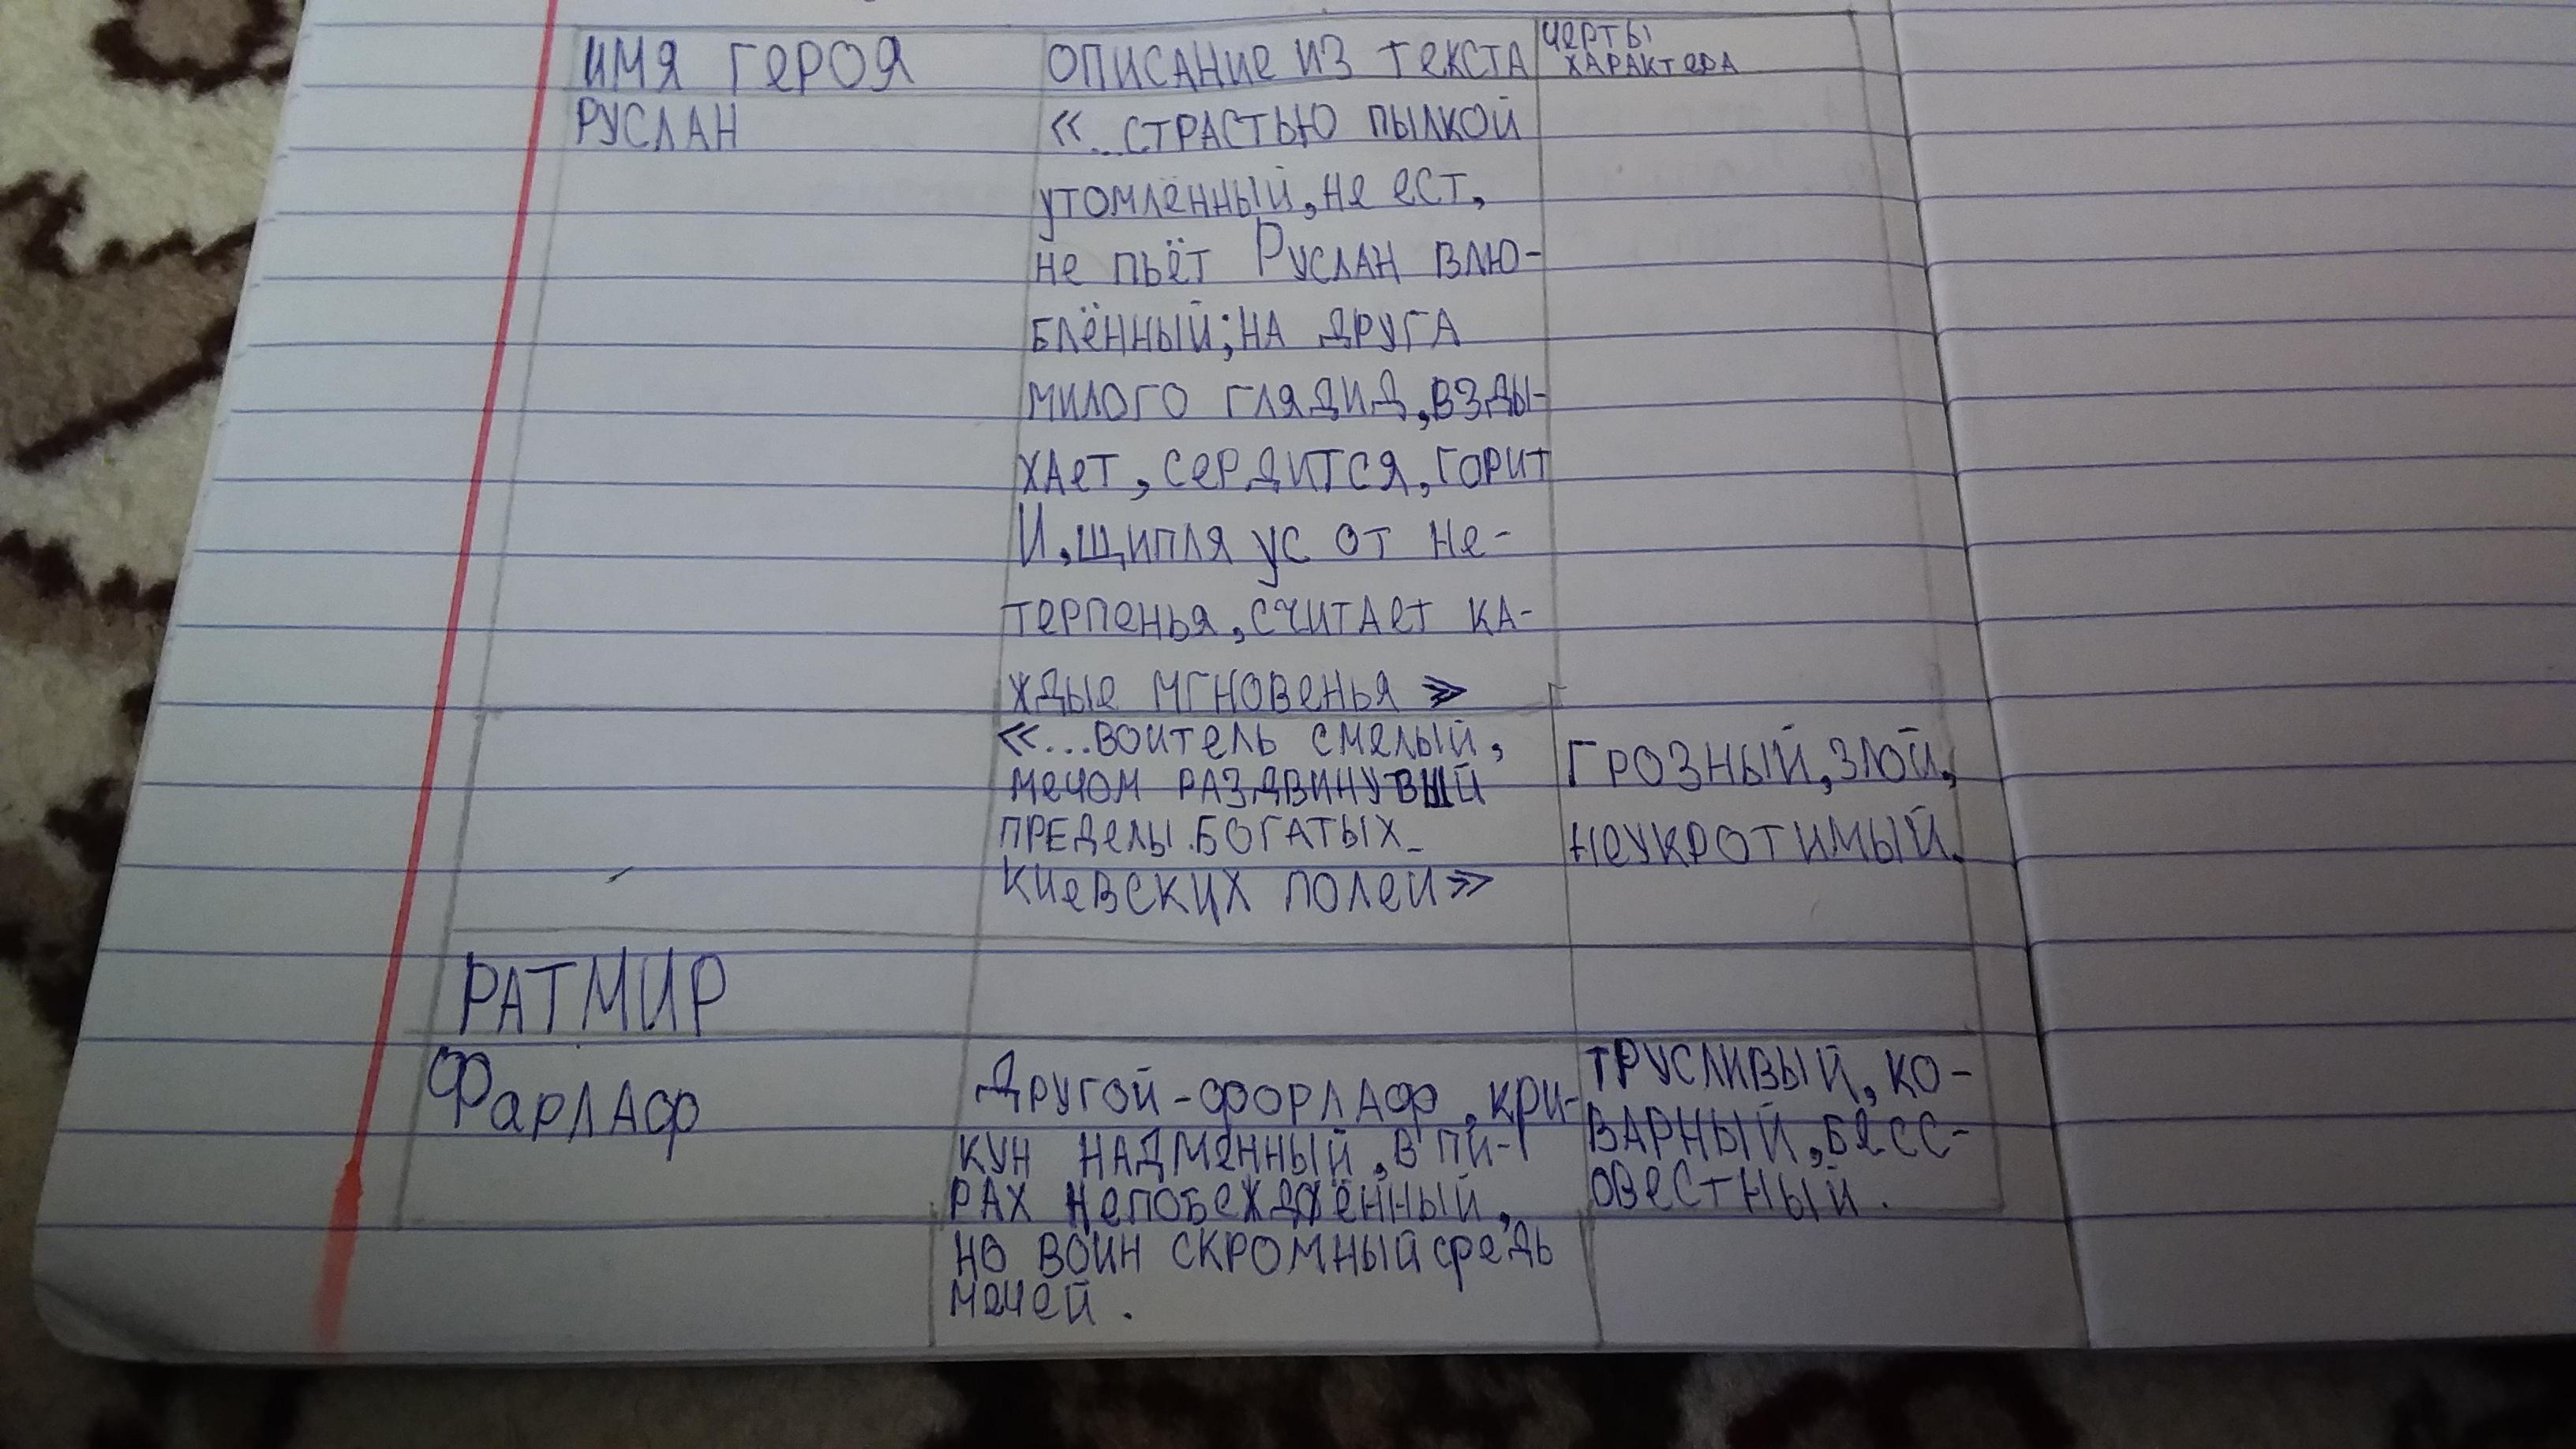 ИМЯ ГЕРОЯ
ОПИСАНИЕ ИЗ ТЕКСТА
ЧЕРТЫ
ХАРАКТЕРА
РУСЛАН
«...СТРАСТЬЮ ПЫЛКОЙ
УТОМЛЁННЫЙ, НЕ ЕСТ,
НЕ ПЬЁТ РУСЛАН ВЛЮ-
БЛЁННЫЙ; НА ДРУГА
МИЛОГО ГЛЯДИД, ВЗДЫ-
ХАЕТ, СЕРДИТСЯ, ГОРИТ
И, ЩИПЛЯ УС ОТ НЕ-
ТЕРПЕНЬЯ, СЧИТАЕТ КА-
ЖДЫЕ МГНОВЕНЬЯ»
«...ВОИТЕЛЬ СМЕЛЫЙ,
МЕЧОМ РАЗДВИНУВШИЙ
ПРЕДЕЛЫ БОГАТЫХ
КИЕВСКИХ ПОЛЕЙ»
ГРОЗНЫЙ, ЗЛОЙ,
НЕУКРОТИМЫЙ.
РАТМИР
ФАРЛАФ
ДРУГОЙ - ФОРЛАФ, КРИ-
КУН НАДМЕННЫЙ, В ПИ-
РАХ НЕПОБЕЖДЁННЫЙ,
НО ВОИН СКРОМНЫЙ СРЕДЬ
МЕЧЕЙ.
ТРУСЛИВЫЙ, КО-
ВАРНЫЙ, БЕСС-
ОВЕСТНЫЙ.